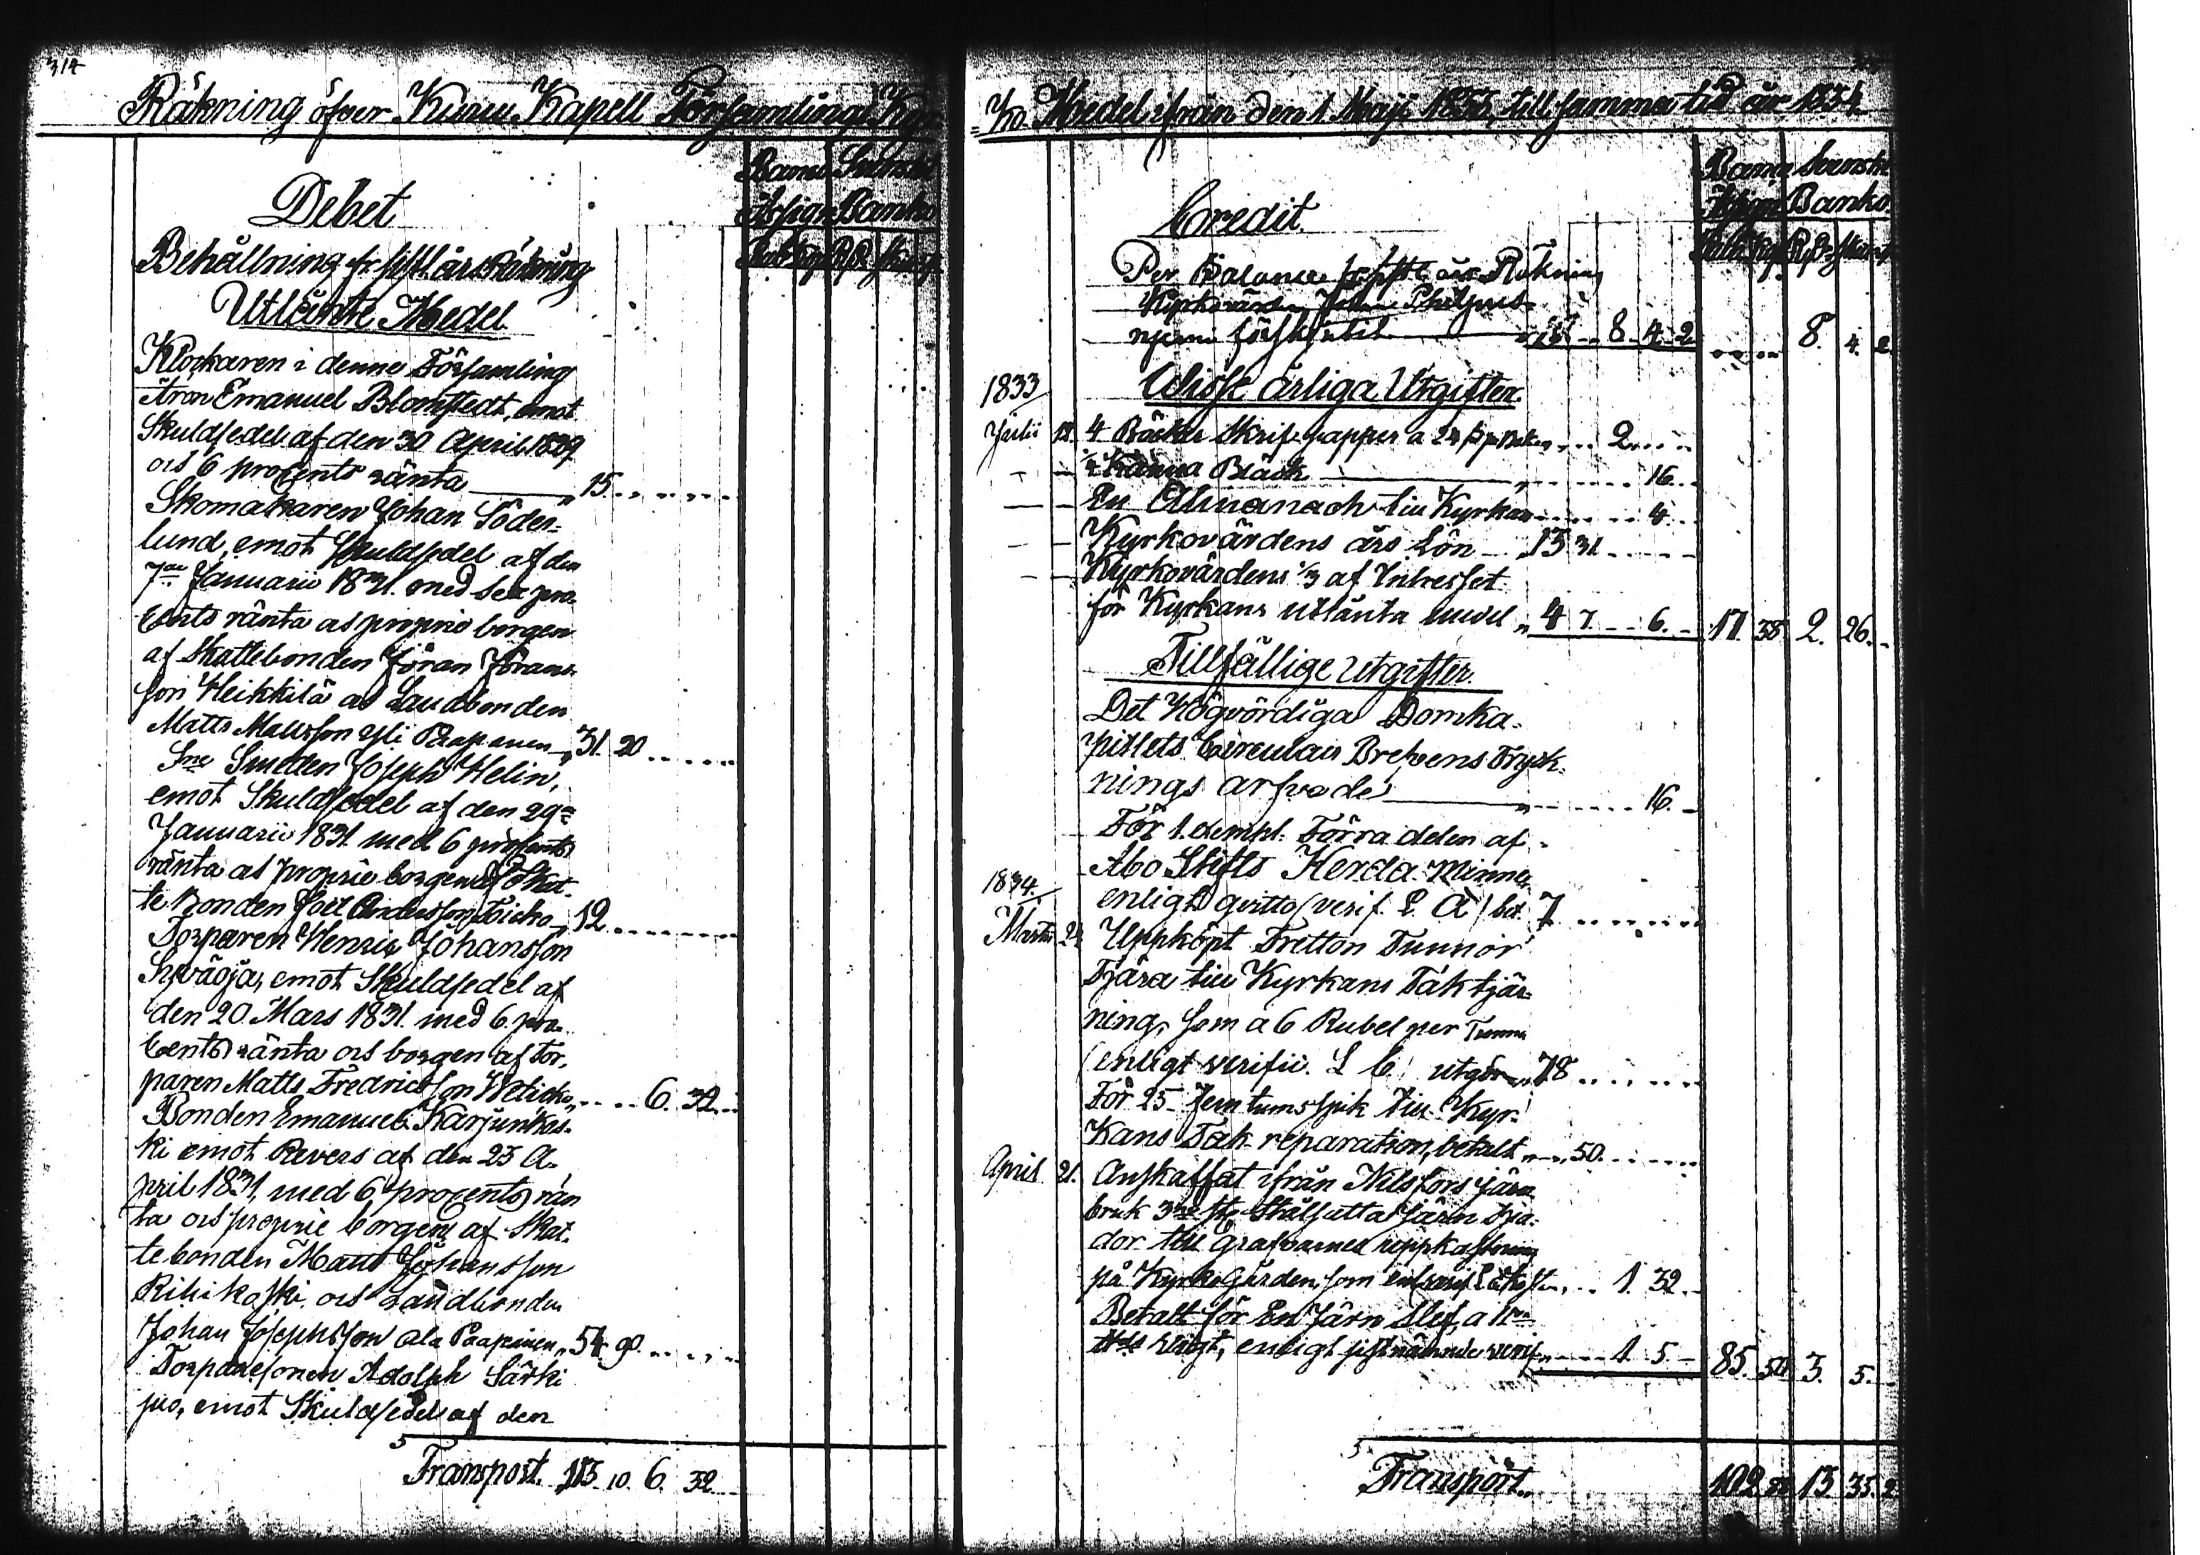 314
Räkning öfver Kuru Kapell Församlings Kyr-
Debet
Banco Svenskt
Assign. Banko
Behållning fr. sistl. års Räkning
Utlånte Medel.
Klockaren i denne Församling
Aron Emanuel Blomstedt, emot
Skuldsedel af den 30 April 1829
och 6 procents ränta 15
Skomakaren Johan Söder-
lund, emot Skuldsedel af den
7de Januarii 1831. med sex pro-
cents ränta och proprie borgen
af Skattebonden Jöran Jörans-
son Heikkilä och Landbonden
Matts Mattsson Yli Paapanen 31. 20
Smeden Joseph Helin,
emot Skuldsedel af den 29de
Januarii 1831 med 6 procents
ränta och proprie borgen af Skat-
te bonden Joel Andersson 12
Torparen Henric Johansson
emot Skuldsedel af
den 20 Mars 1831. med 6. pro-
cents ränta och borgen af Tor-
paren Matts Fredricsson 6. 32
Bonden Emanuel Karjunkos-
ki emot Revers af den 23 A-
pril 1831, med 6 procents rän
ta och proprie borgen af Skat-
tebonden Johansson
Rihikoski, och Landbonden
Johan Josephsson Ala Paapanen 54. 90
Torparesonen Adolph Särki
puo, emot Skuldsedel af den
Transport. 113. 10. 6. 32
ko Medel ifrån den 1 Maji 1833, till samma tid år 1834
Credit.
Banco Svenskt
Assign. Banko
Per Balance fr. sistl. års Räkning
Kyrkovärden
förskjutit 8. 4. 2 8. 4. 2
1833
Wisse årliga Utgifter.
Julii 18. 4 Böcker Skrifpapper a 24 2
1/2 Kanna Bläck 16
En Almanach till Kyrkan 4
Kyrkovärdens års Lön 13 31
Kyrkovärdens 1/3 af Intresset
för Kyrkans utlånta medel 4 7 6. 17 38 2. 26.
Tillfällige utgifter.
Det Högvördiga Domka-
pitlets Circulair Brefvens Tryck-
nings arfvode 16.
För 1. exempl. Förra delen af
Åbo Stifts Herda-Minne
1834
enligt qvitto (verif. L. A) bet. 7
Martii Uppköpt Tretton Tunnor
Tjära till Kyrkans Tak tjär-
ning, som a 6 Rubel per Tunna
(enligt verific. L C) utgör 78
För 25 Jern tumsspik till Kyr-
kans Tak-reparation, betalt 50.
April 21. Anskaffat ifrån Nilsfors järn
bruk 3ne st. Stålsatta Järn
till grafvarnes uppkastning
på Kyrkogården, som 1. 32
Betalt för En Järn Slef,
enligt sistnämnde verif. 1. 5 85. 50 3. 5.
Transport. 102 88 13 35. 2